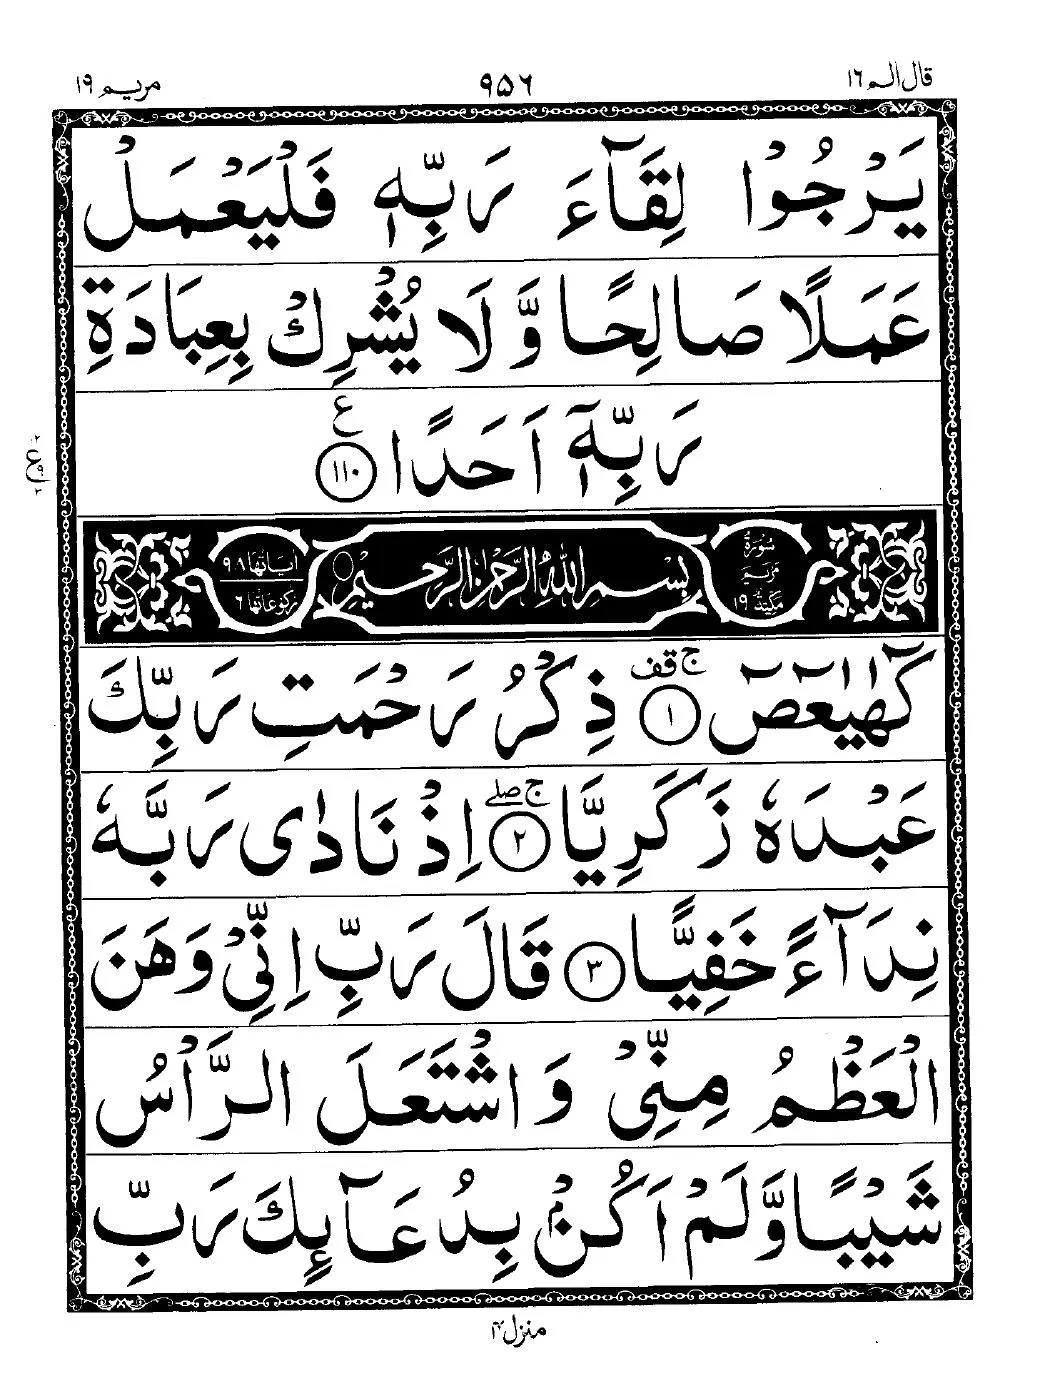 قال الم ١٦
٩٥٦
مريم ١٩
يَرْجُوْا لِقَآءَ رَبِّهٖ فَلْيَعْمَلْ
عَمَلًا صَالِحًا وَّلَا يُشْرِكْ بِعِبَادَةِ
رَبِّهٖٓ اَحَدًا ١١٠ ع
سُوْرَةُ مَرْيَمَ مَكِّيَّةٌ ١٩
بِسْمِ اللّٰهِ الرَّحْمٰنِ الرَّحِيْمِ
اٰيَاتُهَا ٩٨
رُكُوْعَاتُهَا ٦
كٓهٰيٰعٓصٓ ١ ج قف ذِكْرُ رَحْمَتِ رَبِّكَ
عَبْدَهٗ زَكَرِيَّا ٢ ج صلے اِذْ نَادٰى رَبَّهٗ
نِدَآءً خَفِيًّا ٣ قَالَ رَبِّ اِنِّيْ وَهَنَ
الْعَظْمُ مِنِّيْ وَاشْتَعَلَ الرَّاْسُ
شَيْبًا وَّلَمْ اَكُنْۢ بِدُعَآئِكَ رَبِّ
منزل ۴